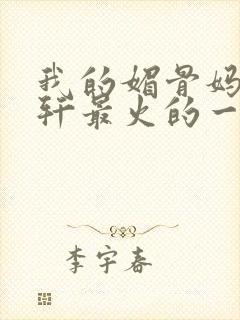 我的媚骨妈
轩最火的一
李宇春